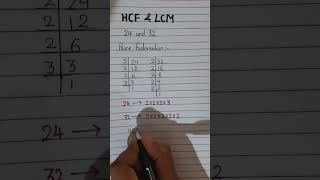 HCF & LCM
24 and 32
Prime factorisation:-
2 | 24   2 | 32
2 | 12   2 | 16
2 | 6   2 | 8
3 | 3   2 | 4
1   2 | 2
1
24 → 2×2×2×3
32 → 2×2×2×2×2